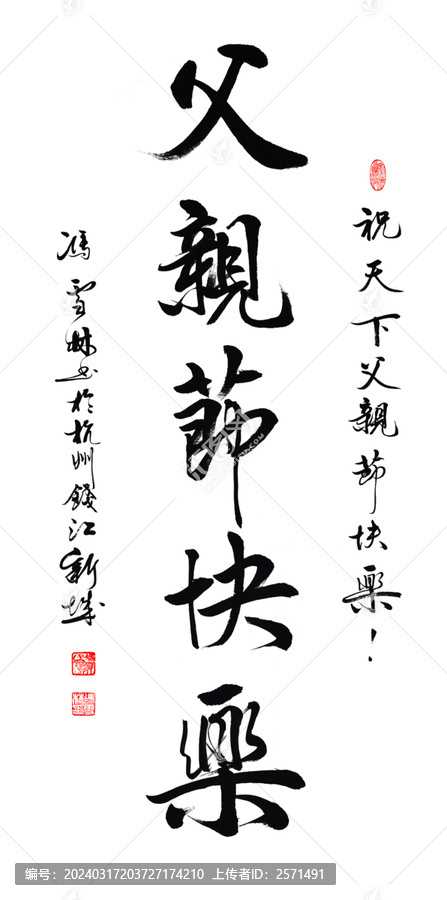 祝天下父親節快樂！
父親節快樂
馮雪林书於杭州錢江新城
编号：20240317203727174210 上传者ID：2571491